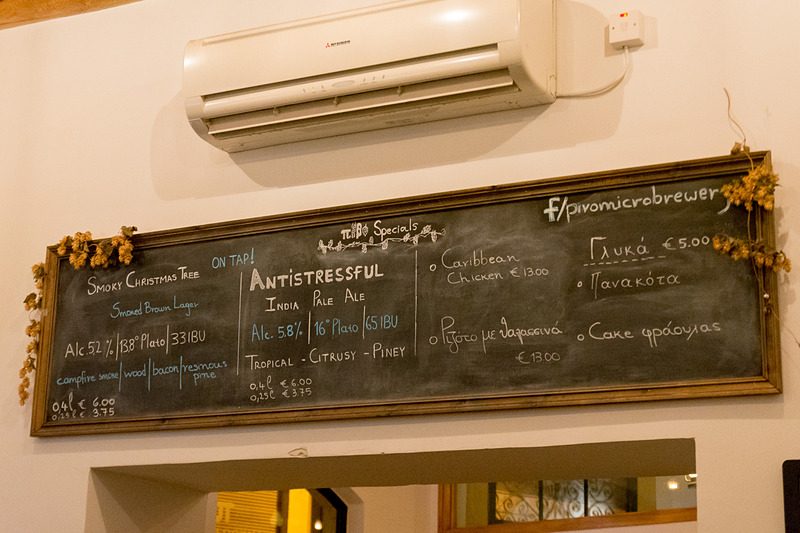 MITSUBISHI
πίβο Specials
f/pivomicrobrewery
ON TAP!
SMOKY CHRISTMAS TREE
Smoked Brown Lager
Alc 5.2 % | 13,8° Plato | 33 IBU
campfire smoke | wood | bacon | resinous pine
0,4 l € 6.00
0,25 l € 3.75
ANTISTRESSFUL
INDIA PALE ALE
Alc. 5.8% | 16° Plato | 65 IBU
TROPICAL - CITRUSY - PINEY
0,4 l € 6.00
0,25 l € 3.75
Caribbean
Chicken € 13.00
Ριζότο με θαλασσινά
€ 13.00
Γλυκά € 5.00
Πανακότα
Cake φράουλας